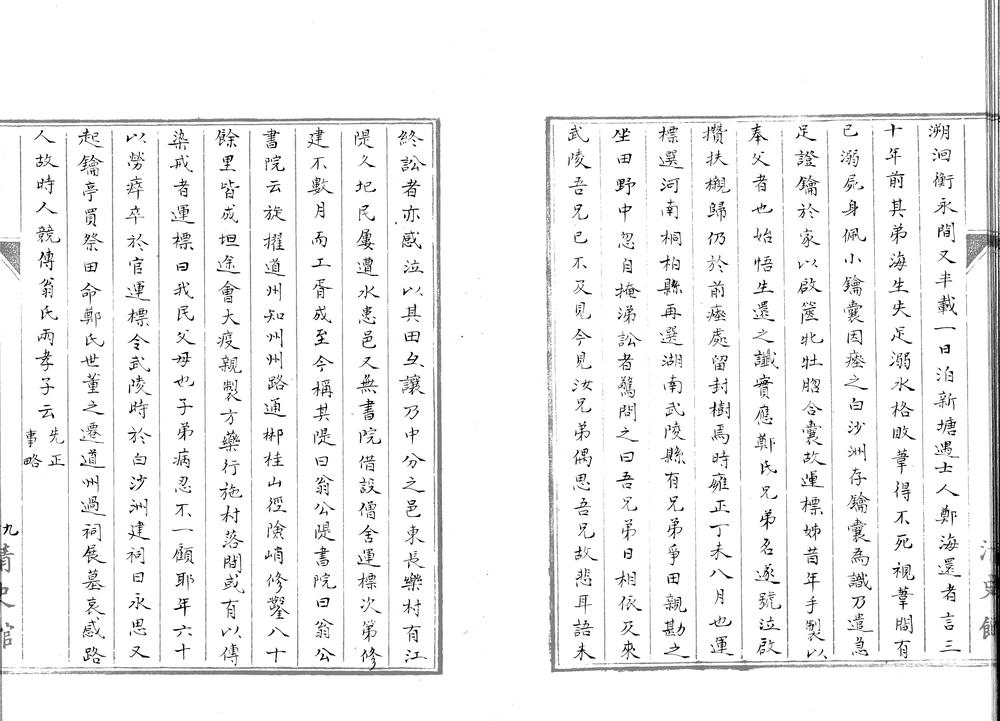 溯洄衡永間又半載一日泊新塘遇士人鄭海還者言三
十年前其弟海生失足溺水格敗葦得不死視葦間有
已溺屍身佩小鑰囊因瘞之白沙洲存鑰囊為識乃遣急
足證鑰於家以啟篋牝牡脗合囊故運標姊昔年手製以
奉父者也始悟生還之讖實應鄭氏兄弟名遂號泣啟
攢扶櫬歸仍於前瘞處留封樹焉時雍正丁未八月也運
標選河南桐柏縣再選湖南武陵縣有兄弟爭田親勘之
坐田野中忽自掩涕訟者驚問之曰吾兄弟日相依及來
武陵吾兄已不及見今見汝兄弟偶思吾兄故悲耳語未
終訟者亦感泣以其田互讓乃中分之邑東長樂村有江
隄久圮民屢遭水患邑又無書院借設僧舍運標次第修
建不數月而工胥成至今稱其隄曰翁公隄書院曰翁公
書院云旋擢道州知州州路通郴桂山徑險峭修鑿八十
餘里皆成坦途會大疫親製方藥行施村落間或有以傳
染戒者運標曰我民父母也子弟病忍不一顧耶年六十
以勞瘁卒於官運標令武陵時於白沙洲建祠曰永思又
起鑰亭買祭田命鄭氏世董之遷道州過祠展墓哀感路
人故時人競傳翁氏兩孝子云 先正
事略
九
清史館